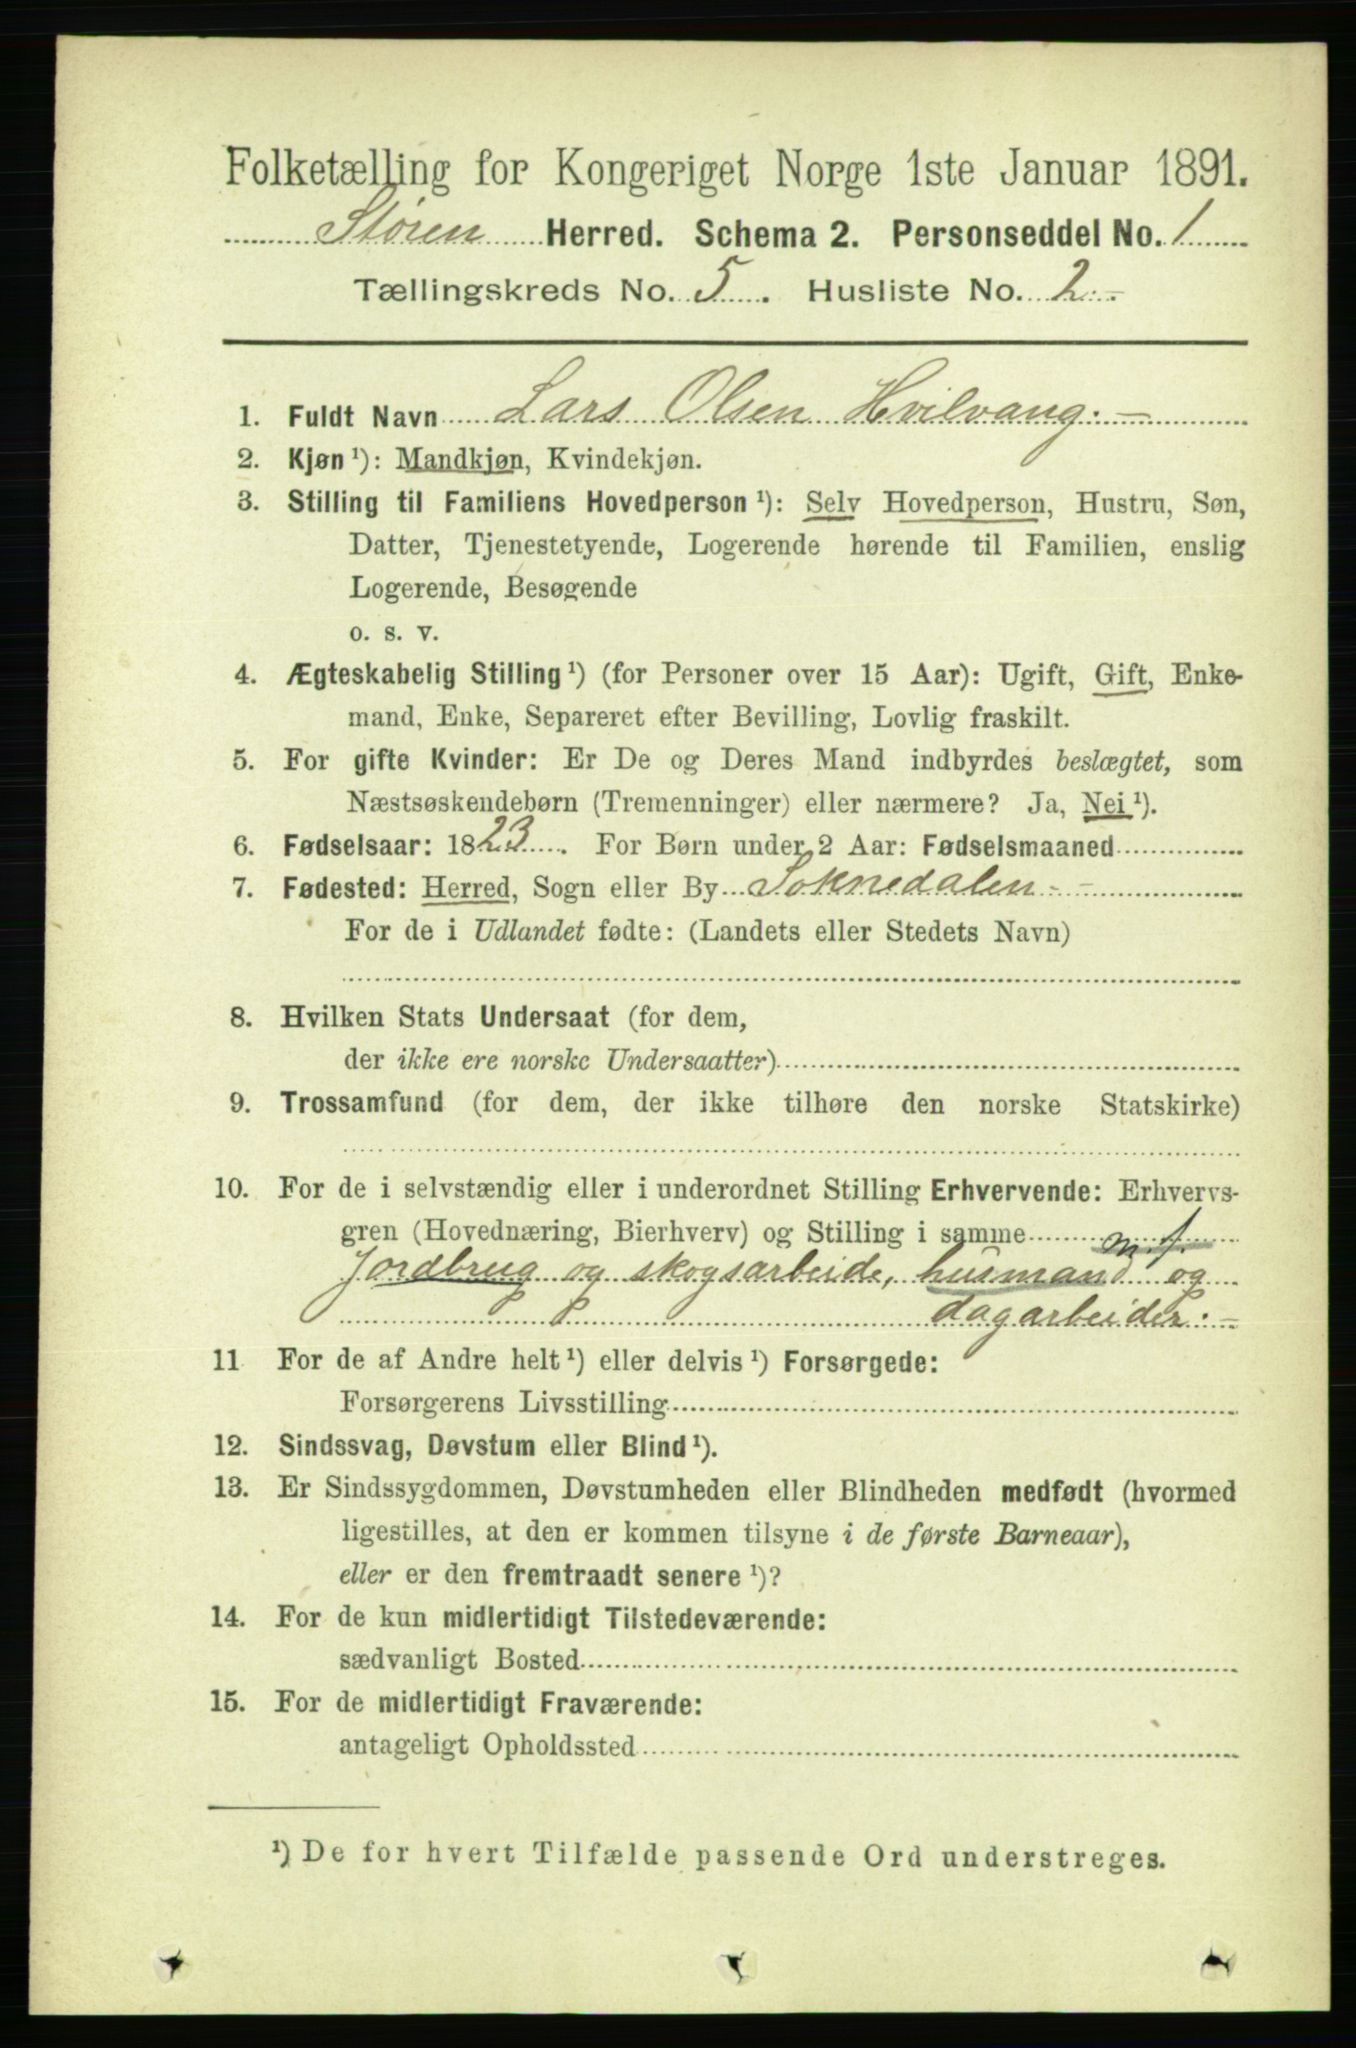 Folketælling for Kongeriget Norge 1ste Januar 1891.
Støren Herred. Schema 2. Personseddel No. 1
Tællingskreds No. 5. Husliste No. 2.-
1. Fuldt Navn Lars Olsen Hvilvang.-
2. Kjøn ¹): Mandkjøn, Kvindekjøn.
3. Stilling til Familiens Hovedperson ¹): Selv Hovedperson, Hustru, Søn,
Datter, Tjenestetyende, Logerende hørende til Familien, enslig
Logerende, Besøgende
o. s. v.
4. Ægteskabelig Stilling ¹) (for Personer over 15 Aar): Ugift, Gift, Enke-
mand, Enke, Separeret efter Bevilling, Lovlig fraskilt.
5. For gifte Kvinder: Er De og Deres Mand indbyrdes beslægtet, som
Næstsøskendebørn (Tremenninger) eller nærmere? Ja, Nei ¹).
6. Fødselsaar: 1823. For Børn under 2 Aar: Fødselsmaaned
7. Fødested: Herred, Sogn eller By Soknedalen.-
For de i Udlandet fødte: (Landets eller Stedets Navn)
8. Hvilken Stats Undersaat (for dem,
der ikke ere norske Undersaatter)
9. Trossamfund (for dem, der ikke tilhøre den norske Statskirke)
10. For de i selvstændig eller i underordnet Stilling Erhvervende: Erhvervs-
gren (Hovednæring, Bierhverv) og Stilling i samme m. f.
Jordbrug og skogsarbeide, husmand og
dagarbeider.-
11 For de af Andre helt ¹) eller delvis ¹) Forsørgede:
Forsørgerens Livsstilling
12. Sindssvag, Døvstum eller Blind ¹).
13. Er Sindssygdommen, Døvstumheden eller Blindheden medfødt (hvormed
ligestilles, at den er kommen tilsyne i de første Barneaar),
eller er den fremtraadt senere ¹)?
14. For de kun midlertidigt Tilstedeværende:
sædvanligt Bosted
15. For de midlertidigt Fraværende:
antageligt Opholdssted
¹) De for hvert Tilfælde passende Ord understreges.